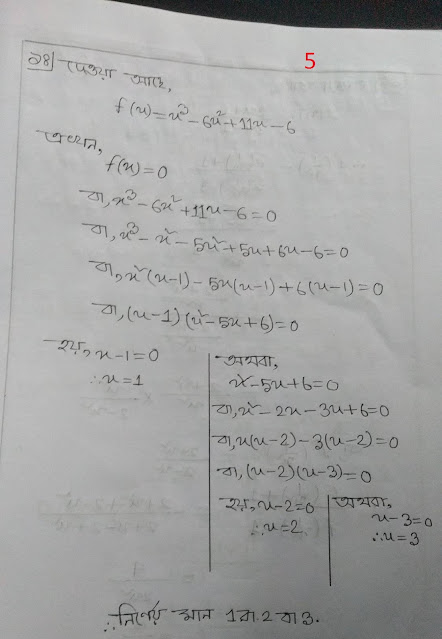 5
১৪| দেওয়া আছে,
f(x)=x³-6x²+11x-6
এখন,
f(x)=0
বা, x³-6x²+11x-6=0
বা, x³-x²-5x²+5x+6x-6=0
বা, x²(x-1)-5x(x-1)+6(x-1)=0
বা, (x-1)(x²-5x+6)=0
হয়, x-1=0
∴x=1
অথবা,
x²-5x+6=0
বা, x²-2x-3x+6=0
বা, x(x-2)-3(x-2)=0
বা, (x-2)(x-3)=0
হয়, x-2=0
∴x=2
অথবা,
x-3=0
∴x=3
∴নির্ণেয় মান 1 বা 2 বা 3.